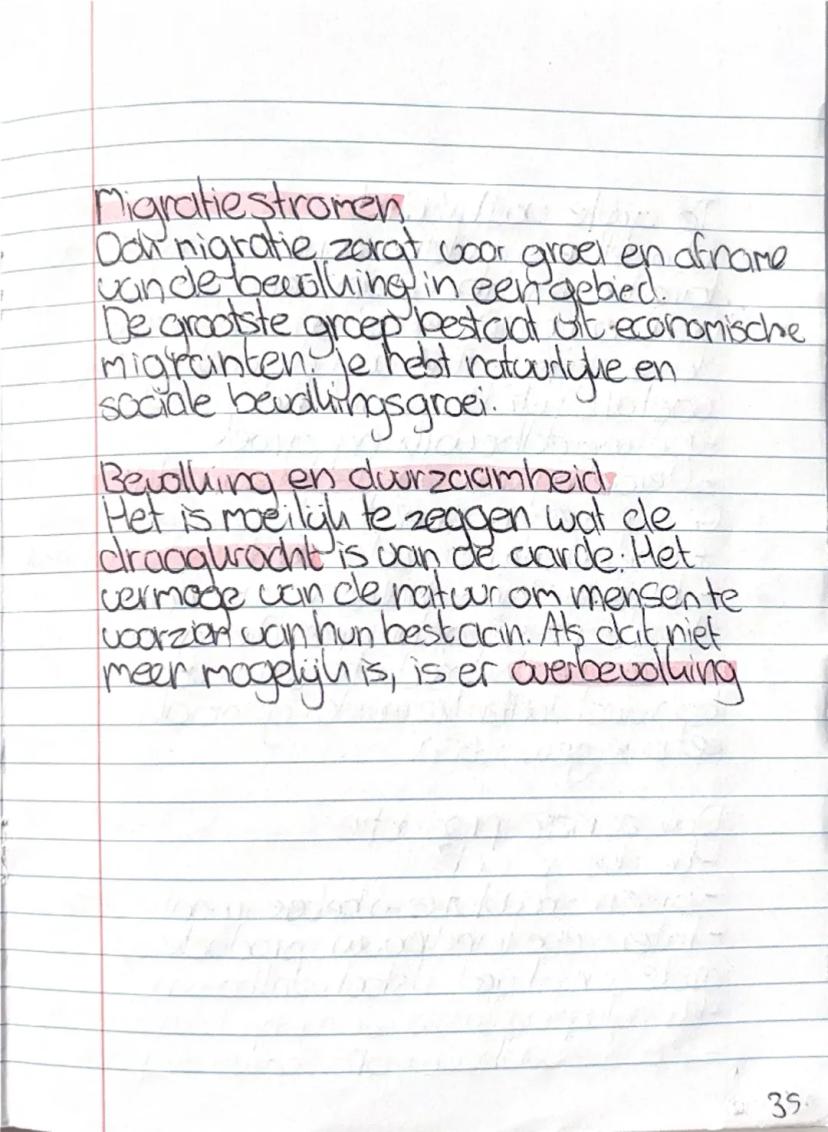 Migratiestromen
Ook migratie zorgt voor groei en afname
van de bevolking in een gebied.
De grootste groep bestaat uit economische
migranten. Je hebt natuurlijke en
sociale bevolkingsgroei.
Bevolking en duurzaamheid
Het is moeilijk te zeggen wat de
draagkracht is van de aarde. Het
vermoge van de natuur om mensen te
voorzien van hun bestaan. Als dat niet
meer mogelijk is, is er overbevolking
39.